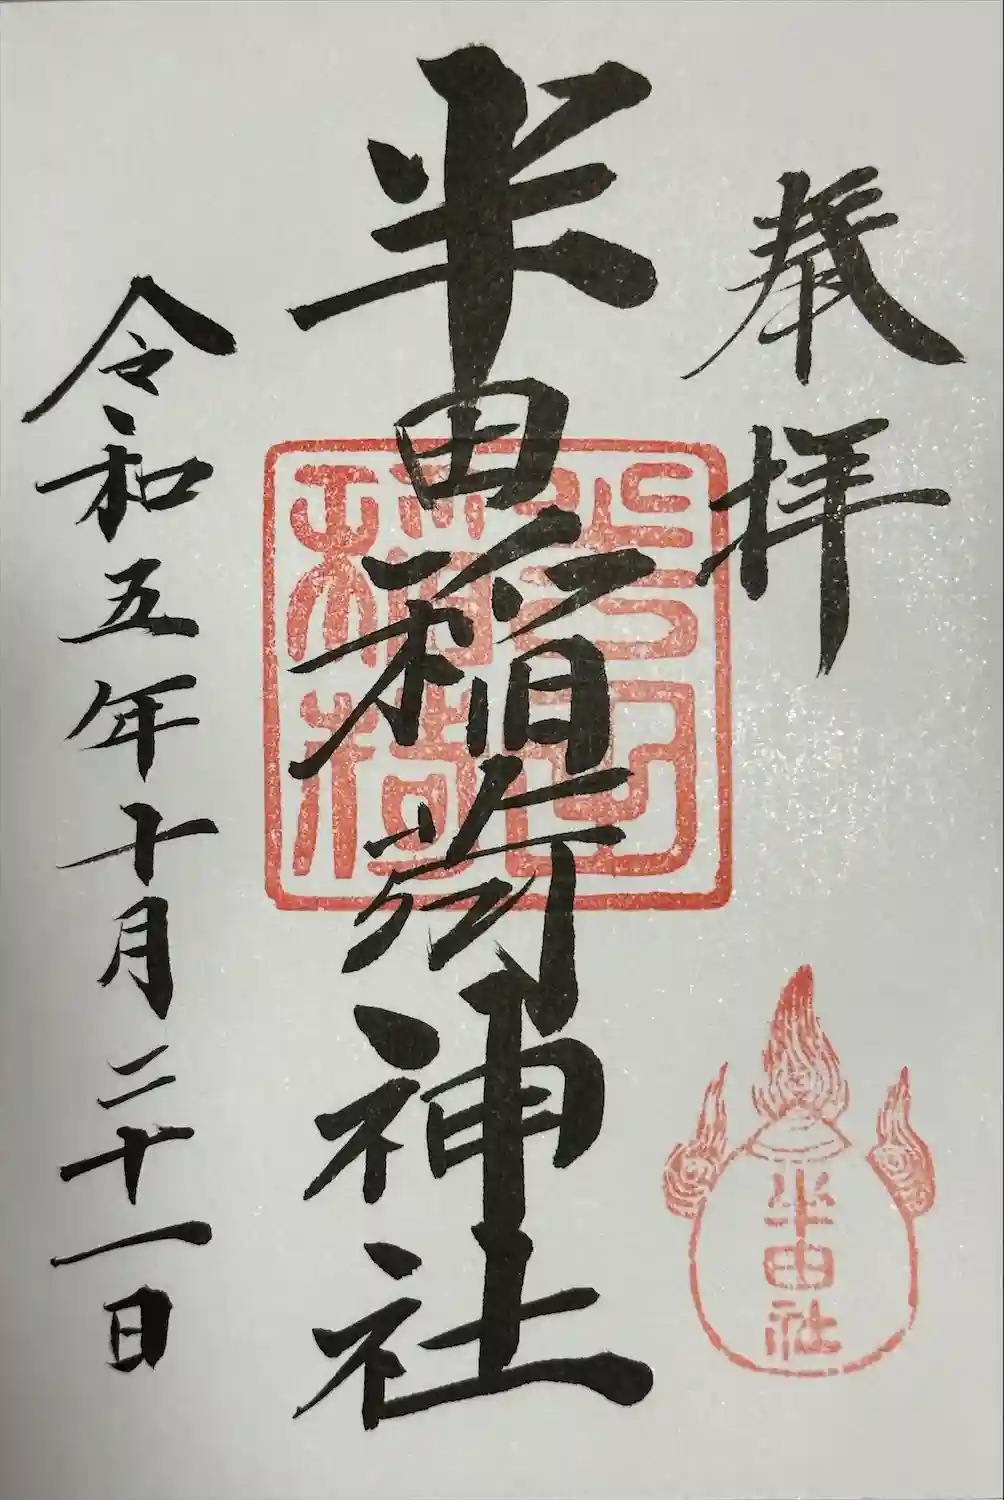 奉拝
半田稲荷神社
半田稲荷
半田社
令和五年十月二十一日